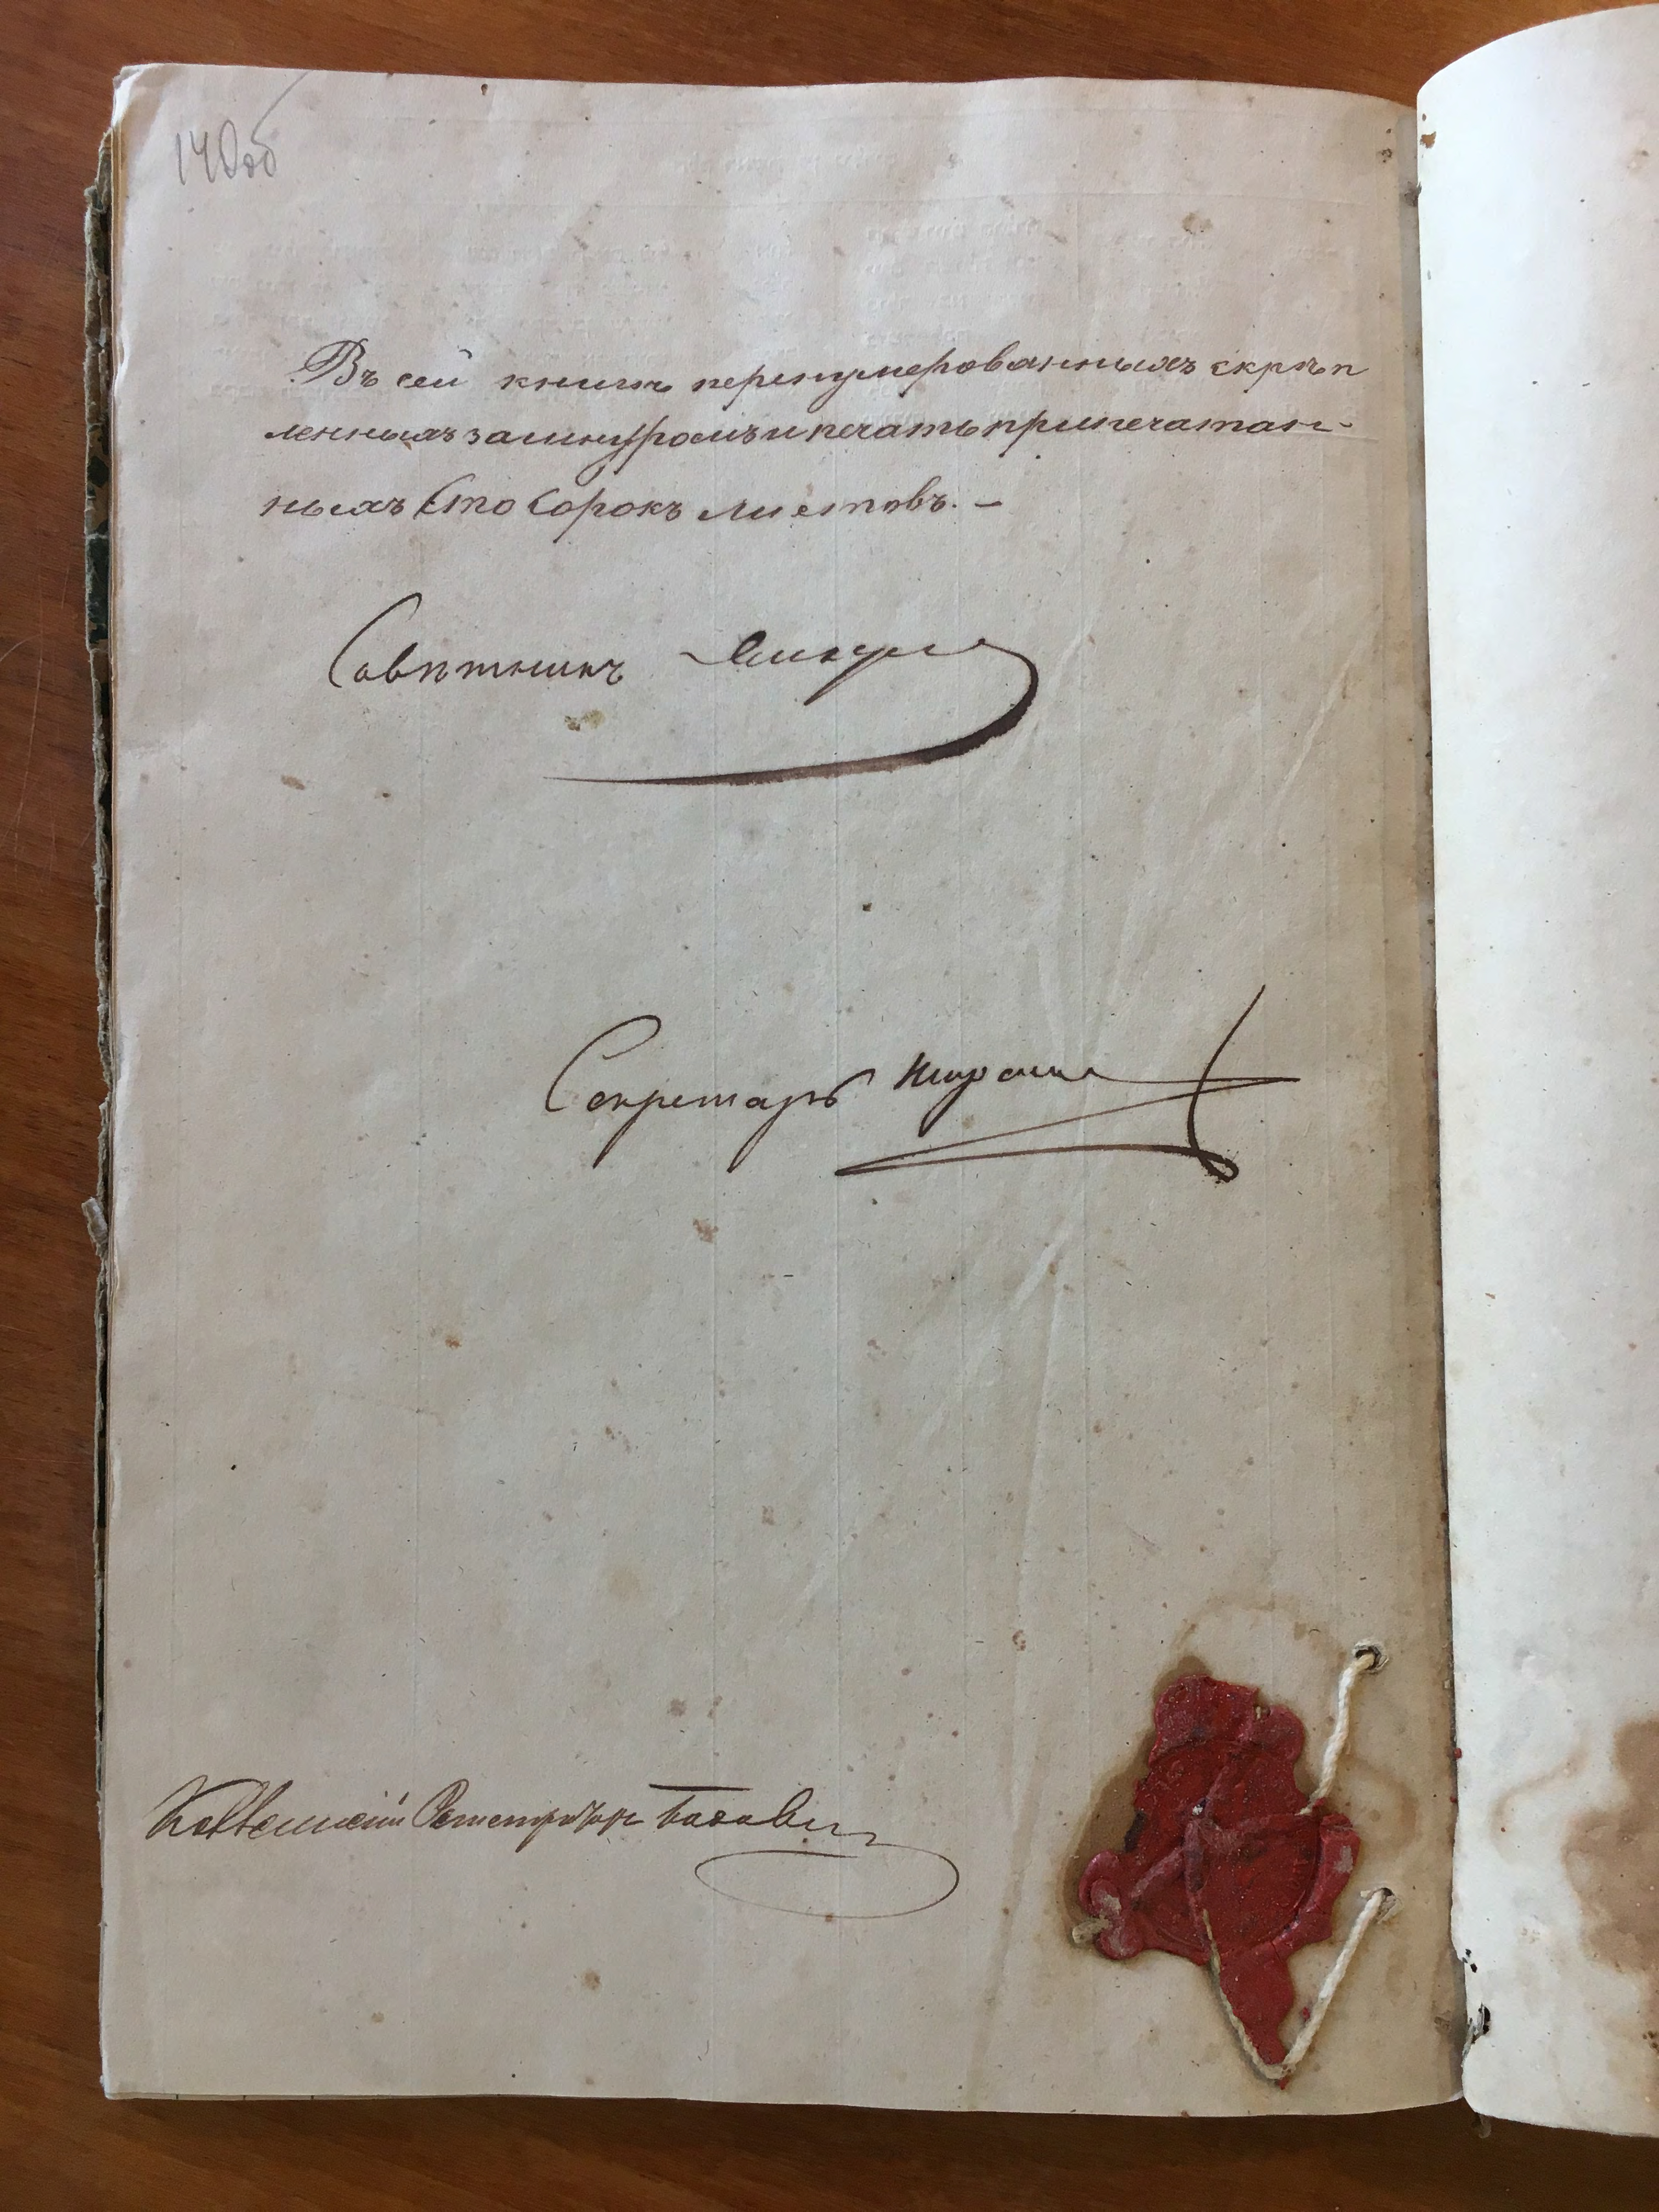 140об
Въ сей книгѣ перенумерованныхъ скрѣп
ленныхъ зашнуромъ и печать припечатан-
ныхъ Сто Сорокъ листовъ. —
Совѣтникъ
Секретарь